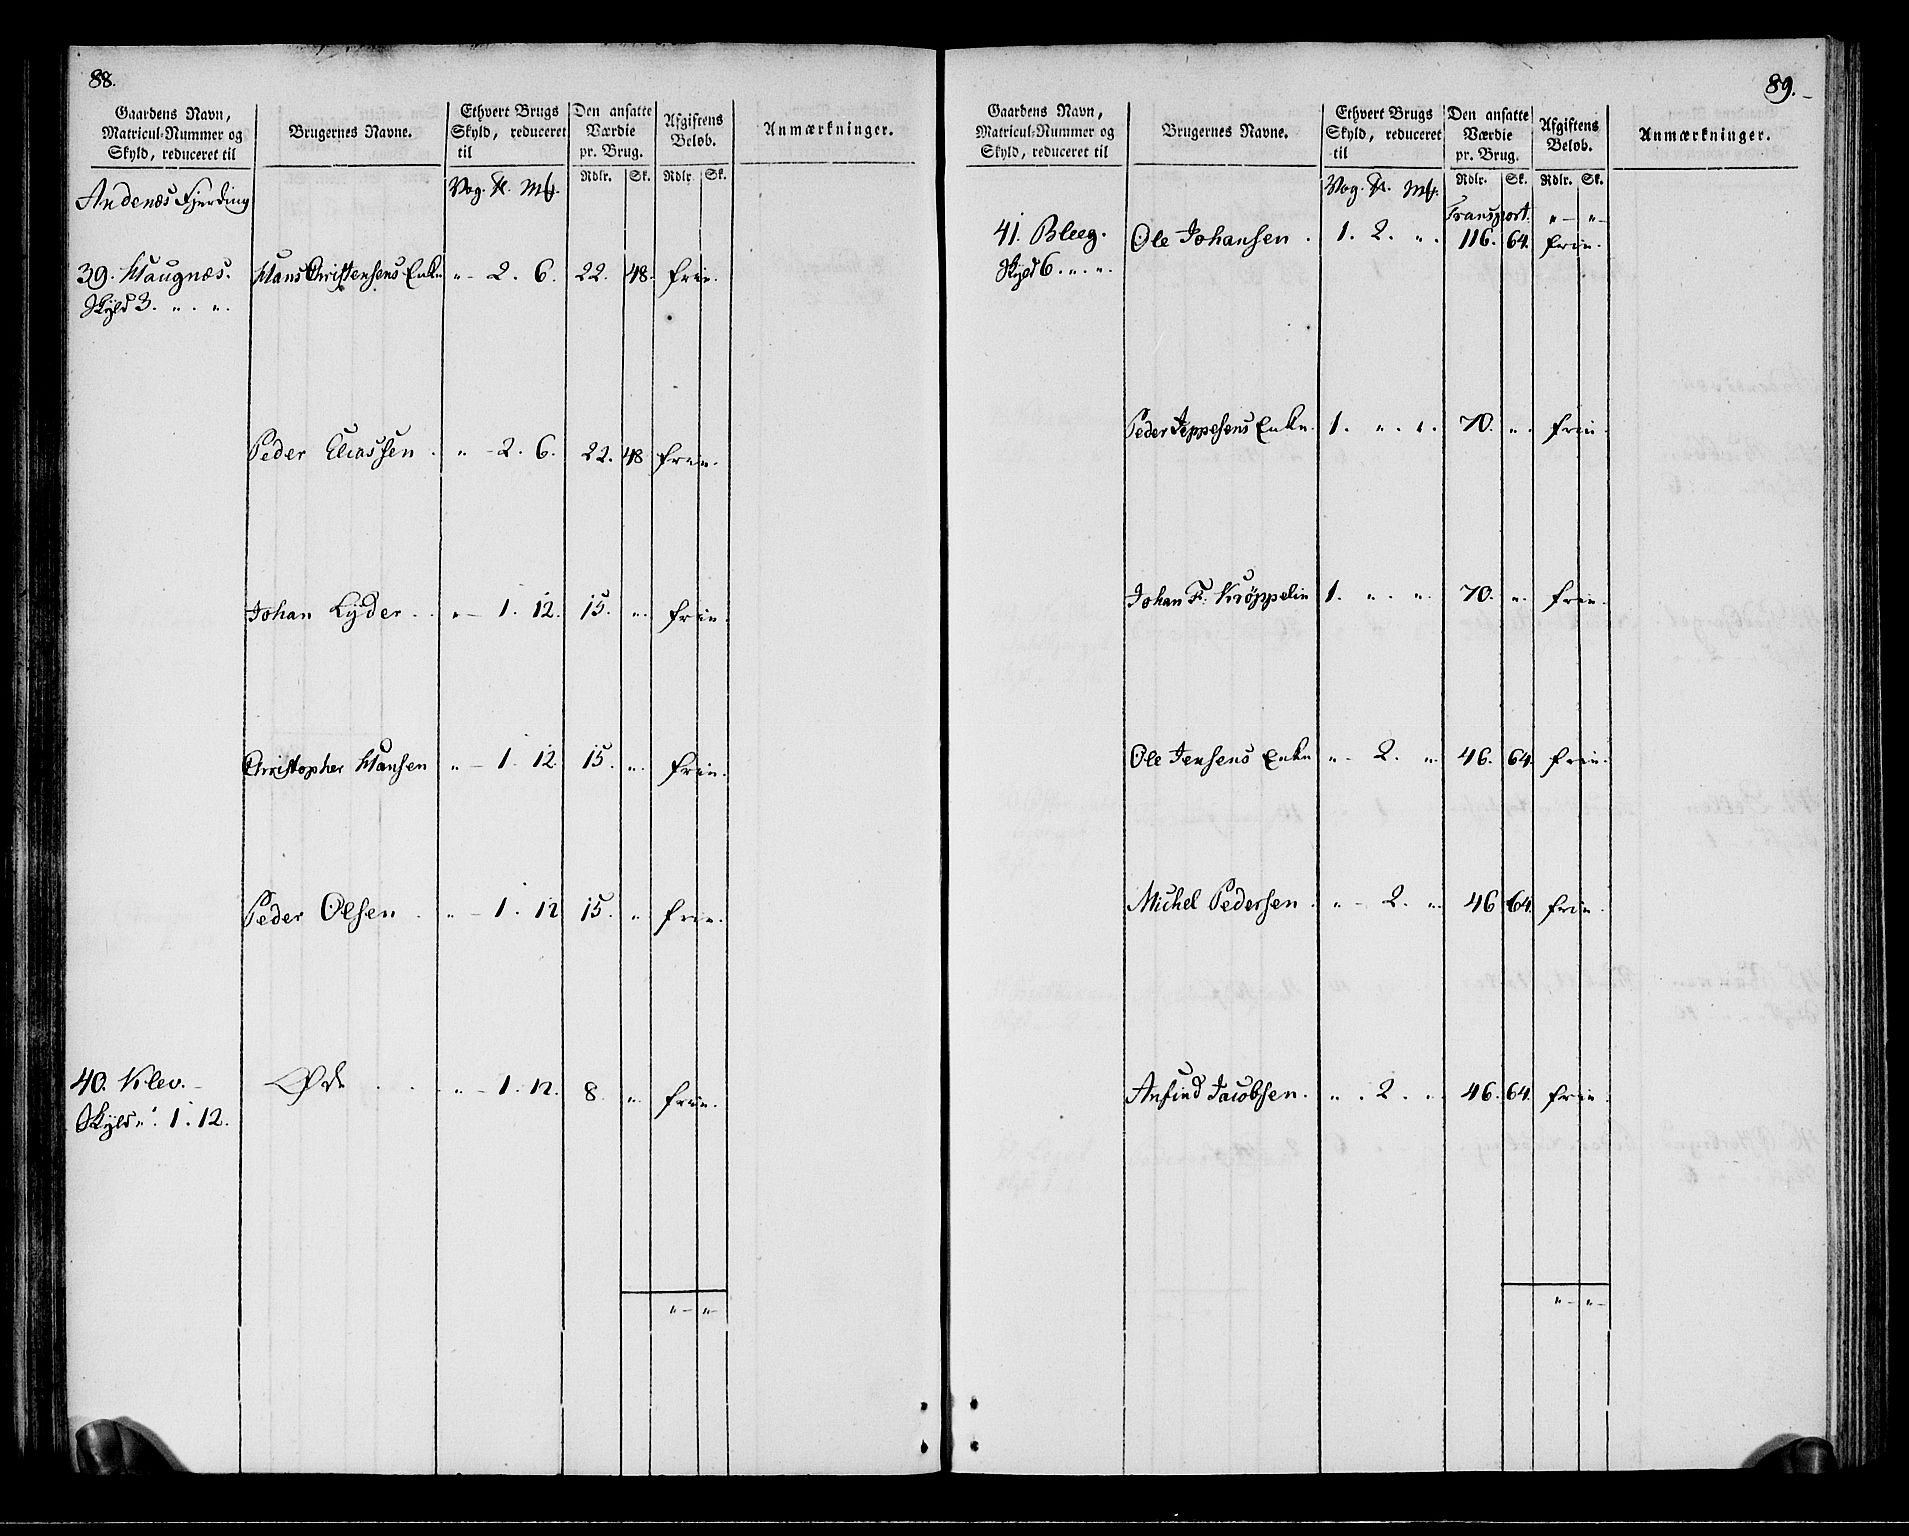 88.
Gaardens Navn, Matricul-Nummer og Skyld, reduceret til
Brugernes Navne.
Ethvert Brugs Skyld, reduceret til
Den ansatte Værdie pr. Brug.
Afgiftens Beløb.
Anmærkninger.
Rdlr. Sk. Rdlr. Sk.
Andenæs Fjerding
Vog. ℔. Mk.
39. Haugnæs. Hans Christensens Enke „ - 2. 6. 22. 48. frie.
Skyld 3. „ . „.
Peder Eliassen . „ - 2. 6. 22. 48 frie.
Johan Lyder . . „ - 1. 12. 15. „. frie.
Christopher Hansen „ - 1. 12 15. „. frie.
Peder Olsen . „ - 1. 12 15. „ frie.
40. Klev. Øde . . „ - 1. 12. 8. „. frie.
Skyld „. 1. 12.
„ - „ -
89.
Gaardens Navn, Matricul-Nummer og Skyld, reduceret til
Brugernes Navne.
Ethvert Brugs Skyld, reduceret til
Den ansatte Værdie pr. Brug.
Afgiftens Beløb.
Anmærkninger.
Rdlr. Sk. Rdlr. Sk.
Vog. ℔. Mk.
Transport. „ - „ -
41. Bleeg. Ole Johansen . 1. 2. „. 116. 64. frie.
Skyld 6. „. „.
Peder Jeppesens Enke. 1. „. „. 70. „. frie.
Johan F. Krøppelin 1. „. „. 70. „. frie.
Ole Jensens Enke „ - 2. „ 46. 64. frie.
Michel Pedersen . „ - 2. „. 46 64. frie.
Anfind Jacobsen. „ . 2. „. 46. 64. frie.
„ - „ -